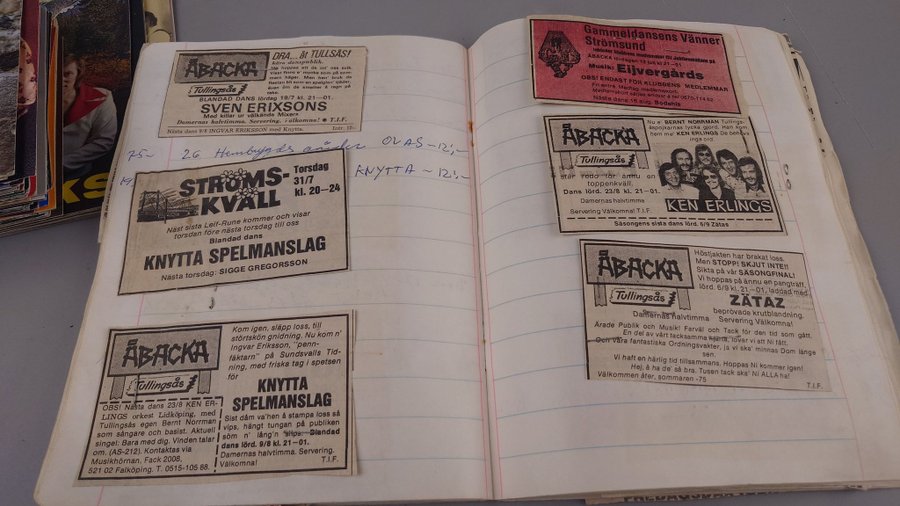 DRA... åt TULLSÅS!
kära danspublik.
ÅBACKA
Tullingsås
BLANDAD DANS lördag 19/7 kl. 21—01
SVEN ERIXSONS
Med killar ur välkända Mixers
Damernas halvtimma. Servering.
T.I.F.
Nästa dans 9/8 INGVAR ERIKSSON med Knytta.
75- 26 Hembygds OVAS-12:-
KNYTTA - 12:-
STRÖMS-
KVÄLL
Torsdag
31/7
kl. 20—24
Näst sista Leif-Rune kommer och visar
torsdan före nästa torsdag till oss
Blandad dans
KNYTTA SPELMANSLAG
Nästa torsdag: SIGGE GREGORSSON
ÅBACKA
Tullingsås
Kom igen, släpp loss, till
störtskön gnidning. Nu kom n'
Ingvar Eriksson, "penn-
fäktarn" på Sundsvalls Tid-
ning, med friska tag i spetsen
för
KNYTTA
SPELMANSLAG
Sist dåm va'hen å stampa loss så
vips, hängt tungan på publiken
som n' lång'n slips. Blandad
dans lörd. 9/8 kl. 21—01.
Damernas halvtimma. Servering.
Välkomna! T.I.F.
OBS! Nästa dans 23/8 KEN ER-
LINGS orkest Lidköping, med
Tullingsås egen Bernt Norrman
som sångare och basist. Aktuell
singel: Bara med dig. Vinden talar
om. (AS-212). Kontaktas via
Musikhörnan, Fack 2008,
521 02 Falköping. T. 0515-105 88.
Gammeldansens Vänner
Strömsund
Musik: Eijvergårds
OBS! ENDAST FÖR KLUBBENS MEDLEMMAR
Nästa dans 15 aug. Bodehls
ÅBACKA
Tullingsås
Nu e' BERNT NORRMAN Tullings-
åspojkarnas lycka gjord. Han kom-
hem me' KEN ERLINGS De
står redo för ännu en
toppenkväll.
Dans lörd. 23/8 kl. 21—01.
Damernas halvtimma
Servering Välkomna! T.I.F.
KEN ERLINGS
Säsongens sista dans lörd. 6/9 Zätas
ÅBACKA
Tullingsås
Höstjakten har brakat loss.
Men STOPP! SKJUT INTE!!
Sikta på vår SÄSONGFINAL!
Vi hoppas på ännu en pangträff,
lörd. 6/9 kl. 21.—01, laddad med
ZÄTAZ
beprövade krutblandning.
Damernas halvtimma Servering Välkomna!
Ärade Publik och Musik! Farväl och Tack för den tid som gått.
En del av vårt tacksamma hjärta, lovar vi att Ni fått.
Och våra fantastiske Ordningsvakter, ja vi ske' minnas Dom länge
sen.
Vi haft en härlig tid tillsammans, Hoppas Ni kommer igen!
Hej, å ha de' så bra. Tusen tack ska' Ni ALLA ha!
Välkommen åter, sommaren -75 T.I.F.